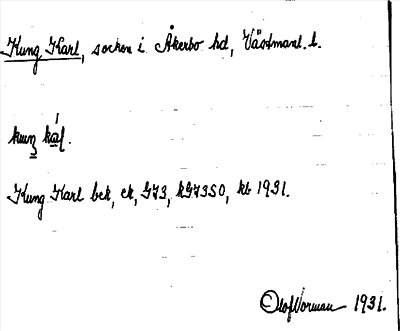 Kung Karl, socken i Åkerbo hd, Västmanl. l.
kuŋ kál.
Kung Karl bek, ek, G73, kG73SO, kb 1931.
Olof Norman 1931.